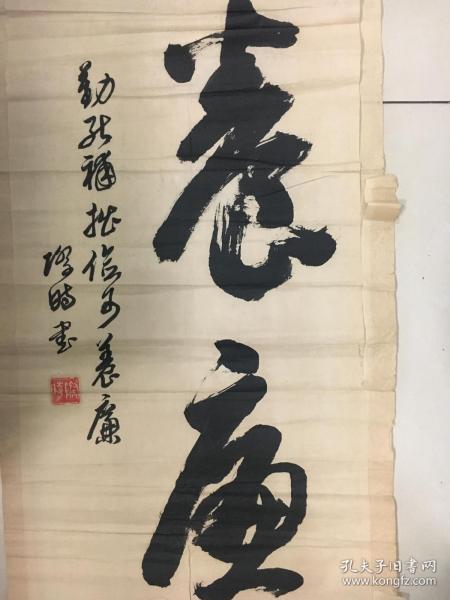 养廉
勤能補拙儉可養廉
際時书
孔夫子旧书网
www.kongfz.com